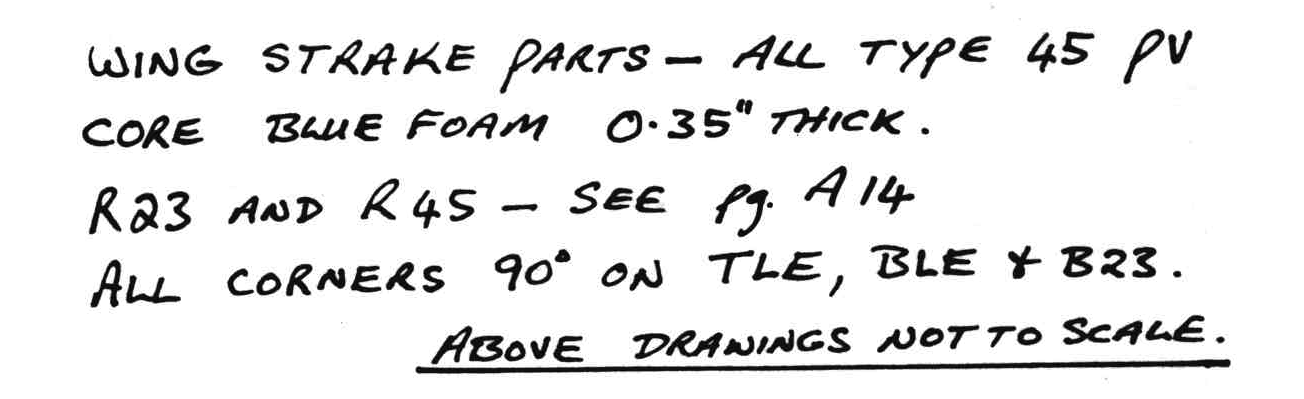 WING STRAKE PARTS — ALL TYPE 45 PV
CORE BLUE FOAM 0.35" THICK.
R23 AND R45 — SEE pg. A14
ALL CORNERS 90° ON TLE, BLE & B23.
ABOVE DRAWINGS NOT TO SCALE.